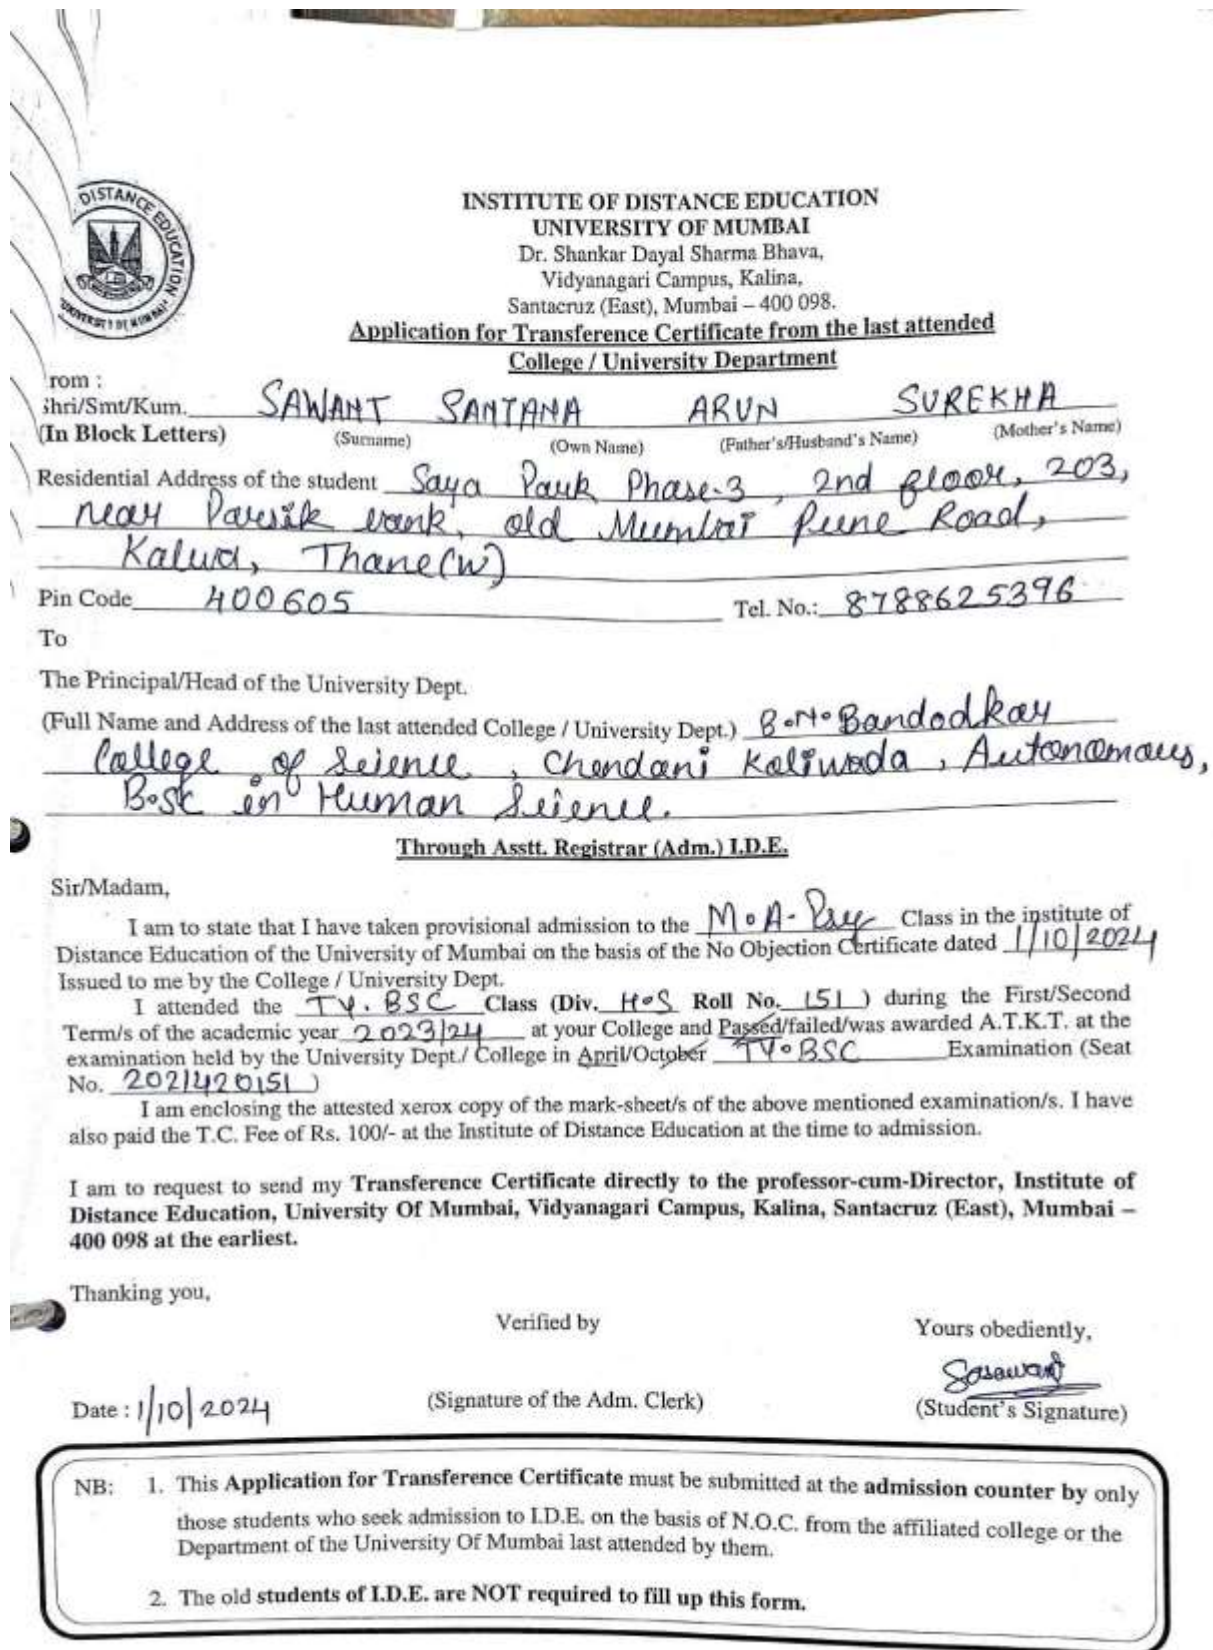 DISTANCE EDUCATION
UNIVERSITY OF MUMBAI
INSTITUTE OF DISTANCE EDUCATION
UNIVERSITY OF MUMBAI
Dr. Shankar Dayal Sharma Bhava,
Vidyanagari Campus, Kalina,
Santacruz (East), Mumbai – 400 098.
Application for Transference Certificate from the last attended
College / University Department
rom :
Shri/Smt/Kum. SAWANT SANTANA ARUN SUREKHA
(In Block Letters) (Surname) (Own Name) (Father's/Husband's Name) (Mother's Name)
Residential Address of the student Saya Park Phase-3, 2nd floor, 203,
near Parsik bank, old Mumbai Pune Road,
Kalwa, Thane(W)
Pin Code 400605 Tel. No.: 8788625396
To
The Principal/Head of the University Dept.
(Full Name and Address of the last attended College / University Dept.) B.N. Bandodkar
College of Science, Chendani Koliwada, Autonomous,
B.Sc in Human Science.
Through Asstt. Registrar (Adm.) I.D.E.
Sir/Madam,
I am to state that I have taken provisional admission to the M.A- Psy Class in the institute of
Distance Education of the University of Mumbai on the basis of the No Objection Certificate dated 1/10/2024
Issued to me by the College / University Dept.
I attended the TY.BSC Class (Div. H.S Roll No. 151) during the First/Second
Term/s of the academic year 2023/24 at your College and Passed/failed/was awarded A.T.K.T. at the
examination held by the University Dept./ College in April/October TY.BSC Examination (Seat
No. 2021420151)
I am enclosing the attested xerox copy of the mark-sheet/s of the above mentioned examination/s. I have
also paid the T.C. Fee of Rs. 100/- at the Institute of Distance Education at the time to admission.
I am to request to send my Transference Certificate directly to the professor-cum-Director, Institute of
Distance Education, University Of Mumbai, Vidyanagari Campus, Kalina, Santacruz (East), Mumbai –
400 098 at the earliest.
Thanking you,
Verified by Yours obediently,
Sasawant
Date : 1/10/2024 (Signature of the Adm. Clerk) (Student's Signature)
NB: 1. This Application for Transference Certificate must be submitted at the admission counter by only
those students who seek admission to I.D.E. on the basis of N.O.C. from the affiliated college or the
Department of the University Of Mumbai last attended by them.
2. The old students of I.D.E. are NOT required to fill up this form.